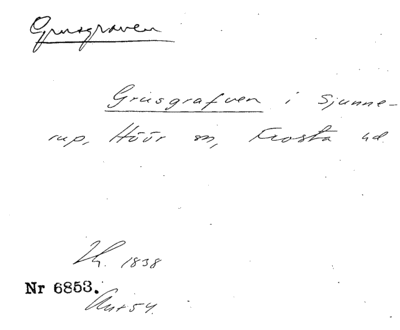 Grusgraven
Grusgrafven i Sjunne-
rup, Höör sn, Frosta hd
Lh. 1838
Nr 6853.
Avr 54.